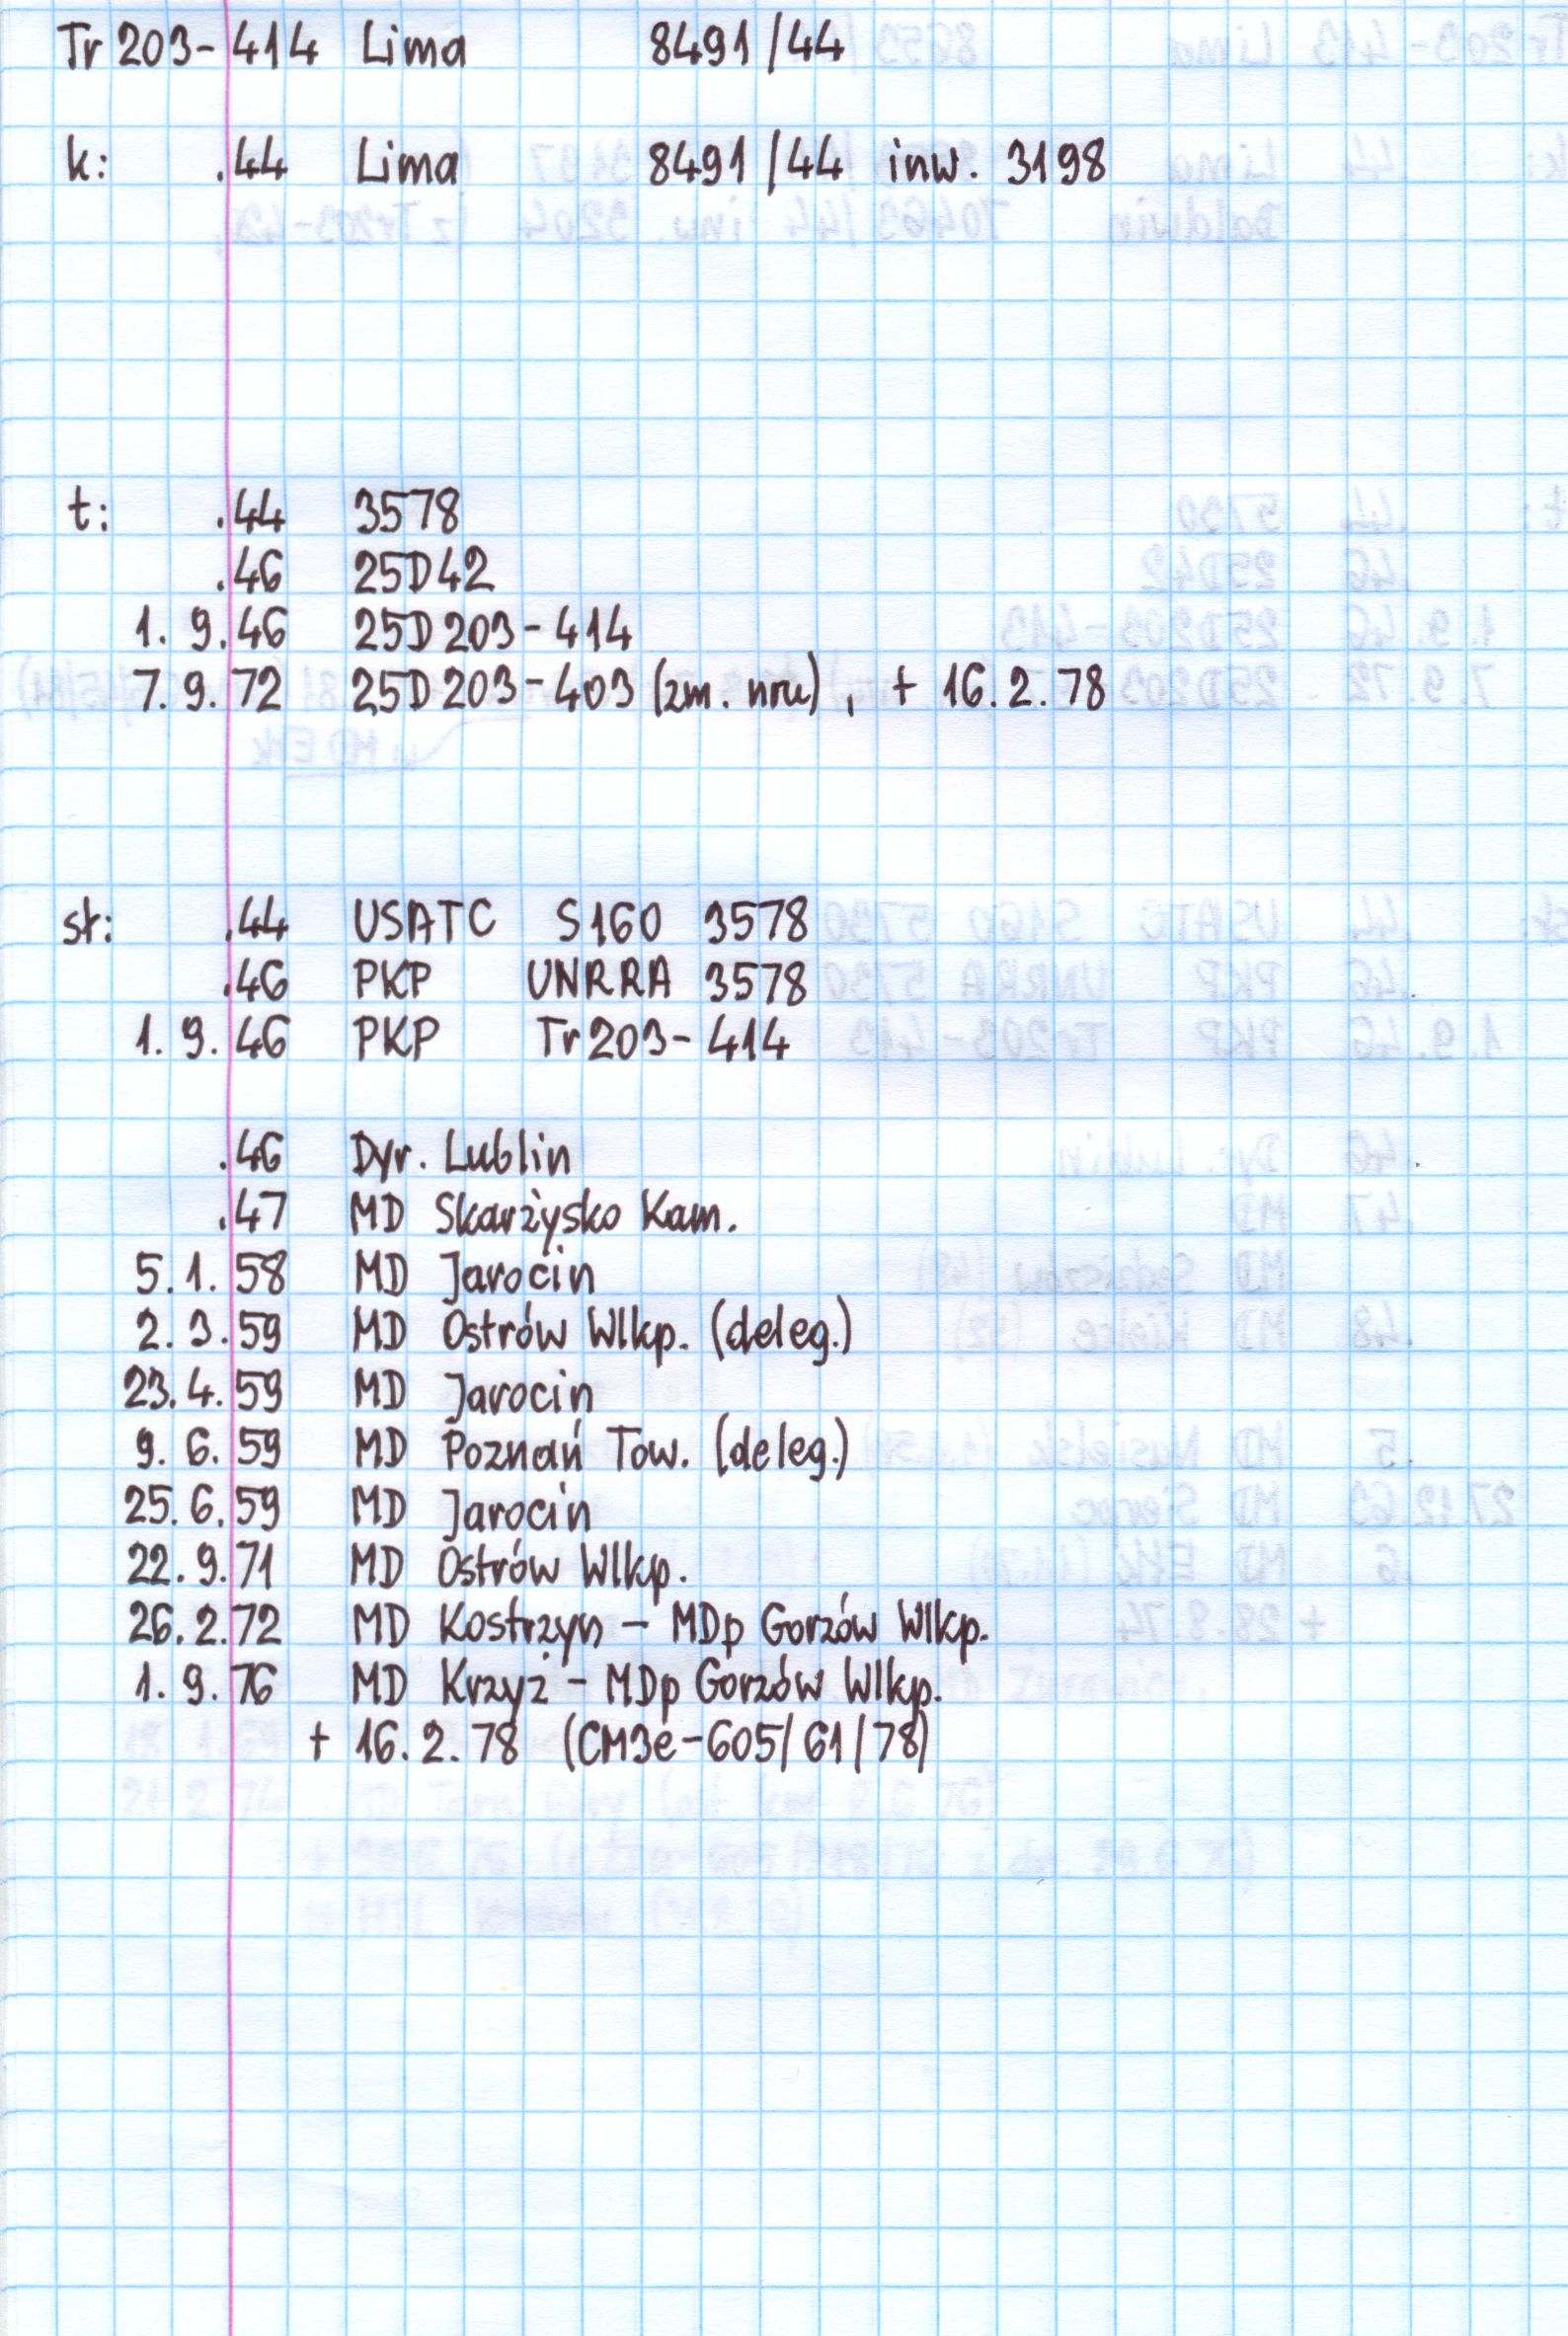 Tr 203-414 Lima 8491/44
k: .44 Lima 8491/44 inw. 3198
t: .44 3578
.46 25D42
1. 9.46 25D203-414
7. 9. 72 25D203-403 (zm. nru), + 16.2.78
st: .44 USATC S160 3578
.46 PKP UNRRA 3578
1. 9. 46 PKP Tr203-414
.46 Dyr. Lublin
.47 MD Skarżysko Kam.
5. 1. 58 MD Jarocin
2. 3. 59 MD Ostrów Wlkp. (deleg.)
23. 4. 59 MD Jarocin
9. 6. 59 MD Poznań Tow. (deleg.)
25. 6. 59 MD Jarocin
22. 9. 71 MD Ostrów Wlkp.
26. 2. 72 MD Kostrzyn - MDp Gorzów Wlkp.
1. 9. 76 MD Krzyż - MDp Gorzów Wlkp.
+ 16. 2. 78 (CM3e-605/61/78)